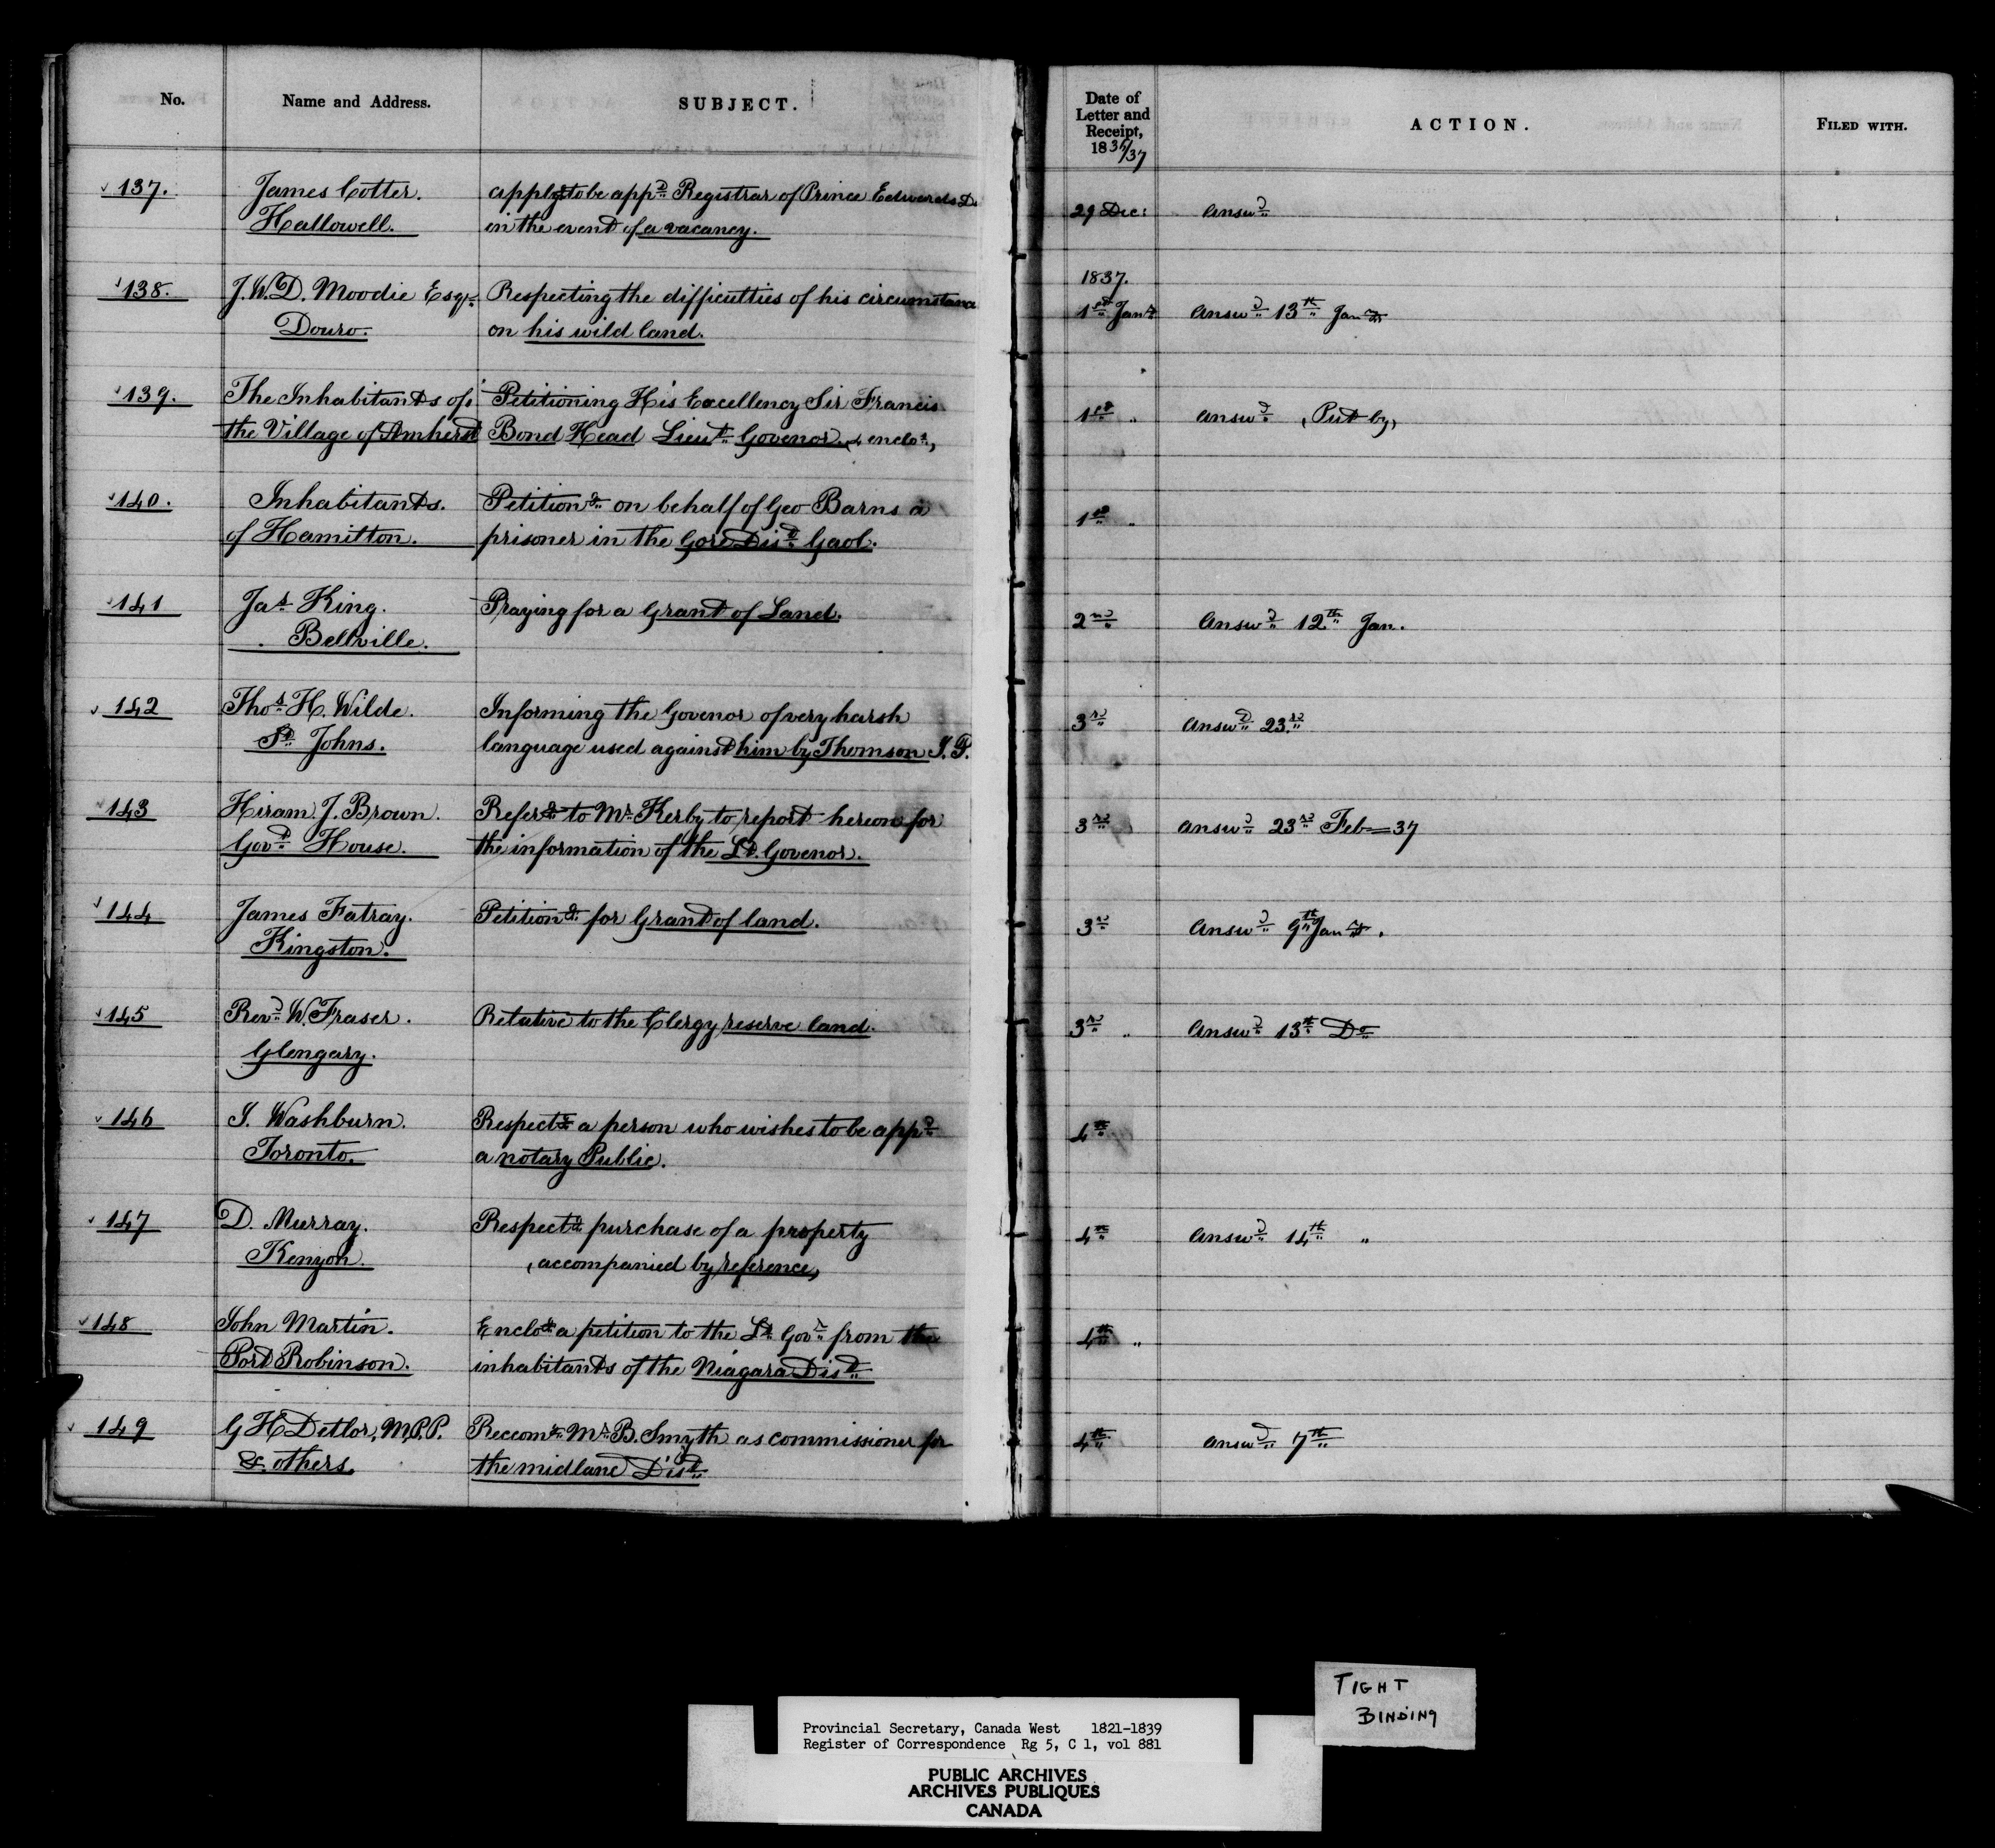 No. Name and Address. SUBJECT. Date of Letter and Receipt, 1836/37 ACTION. FILED WITH.
137. James Cotter. applyg to be appd Registrar of Prince Edwards D. 29 Dec: Answd
Hallowell. in the event of a vacancy.
1837.
138. J. W. D. Moodie Esqr. Respecting the difficulties of his circumstance 1st Jany Answd 13th Jany
Douro. on his wild land.
139. The Inhabitants of Petitioning His Excellency Sir Francis 1st " Answd (Put by)
the Village of Amherst Bond Head Lieut Govenor. (& enclos)
140. Inhabitants. Petitiong on behalf of Geo Barns a 1st "
of Hamilton. prisoner in the Gore Dist Gaol.
141 Jas King. Praying for a Grant of Land. 2nd Answd 12th Jan.
Bellville.
142 Thos H. Wilde. Informing the Govenor of very harsh 3rd Answd 23rd
St Johns. language used against him by Thomson J.P.
143 Hiram J. Brown. Referg to Mr Kerby to report hereon for 3rd Answd 23rd Feb 37
Govt House. the information of the Lt. Govenor.
144 James Fatray. Petitiong for Grant of land. 3rd Answd 9th Jany.
Kingston.
145 Revd W. Fraser. Relative to the Clergy reserve land. 3rd " Answd 13th Do
Glengary.
146 J. Washburn. Respectg a person who wishes to be appd 4th
Toronto. a notary Public.
147 D. Murray. Respectg purchase of a property 4th Answd 14th "
Kenyon. (accompanied by reference)
148 John Martin. Enclosg a petition to the Lt Govr from the 4th "
Port Robinson. inhabitants of the Niagara Dist
149 G H Detlor, M.P.P. Reccomg Mr B. Smyth as commissioner for 4th Answd 7th
& others. the midland Dist
TIGHT
BINDING
Provincial Secretary, Canada West 1821-1839
Register of Correspondence Rg 5, C 1, vol 881
PUBLIC ARCHIVES
ARCHIVES PUBLIQUES
CANADA